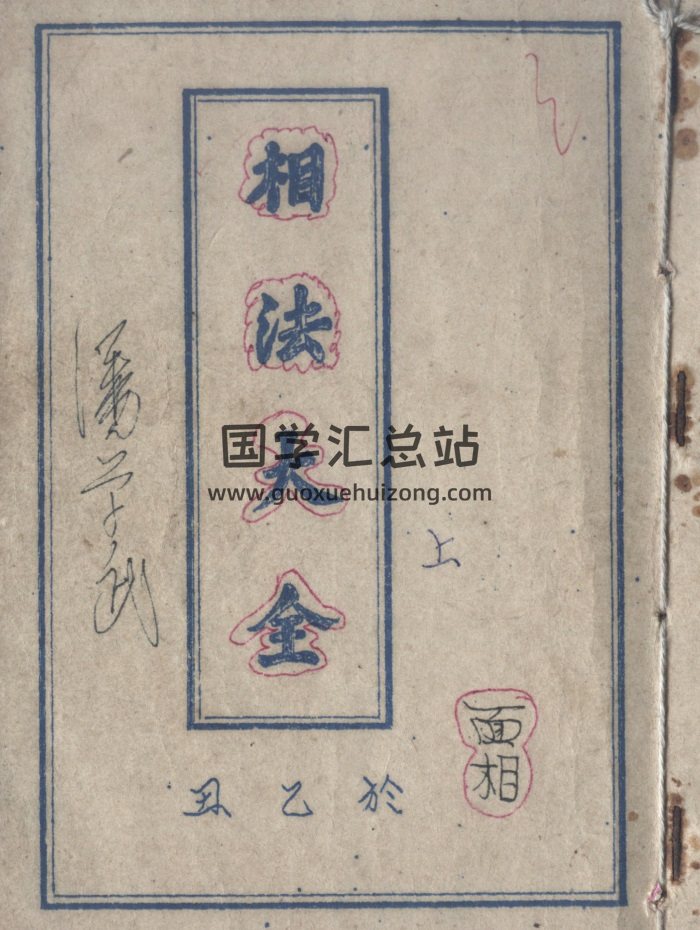 相法大全
国学汇总站
www.guoxuehuizong.com
上
潘学武
面相
於乙丑